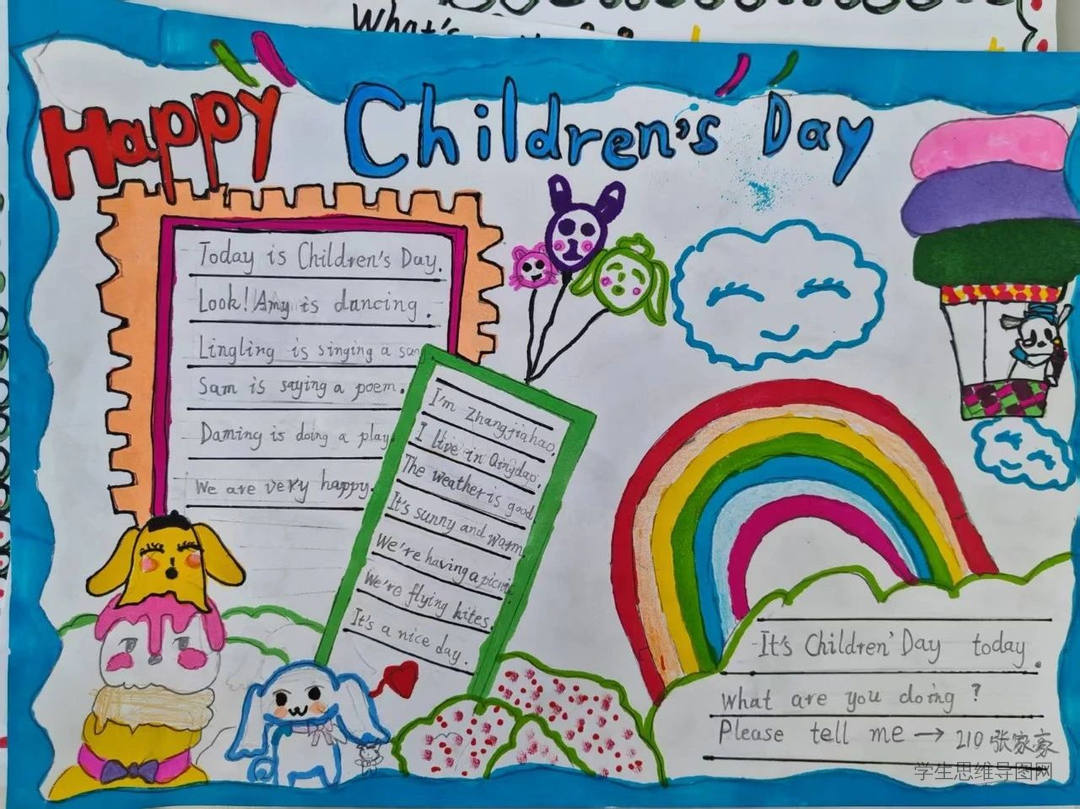 What's
Happy Children's Day
Today is Children's Day.
Look! Amy is dancing.
Lingling is singing a
Sam is saying a poem.
Daming is doing a play
We are very happy.
I'm Zhangjiahao.
I live in Qingdao.
The weather is good.
It's sunny and warm.
We're having a picnic
We're flying kites.
It's a nice day.
It's Children' Day today.
What are you doing?
Please tell me → 210 张家豪
学生思维导图网